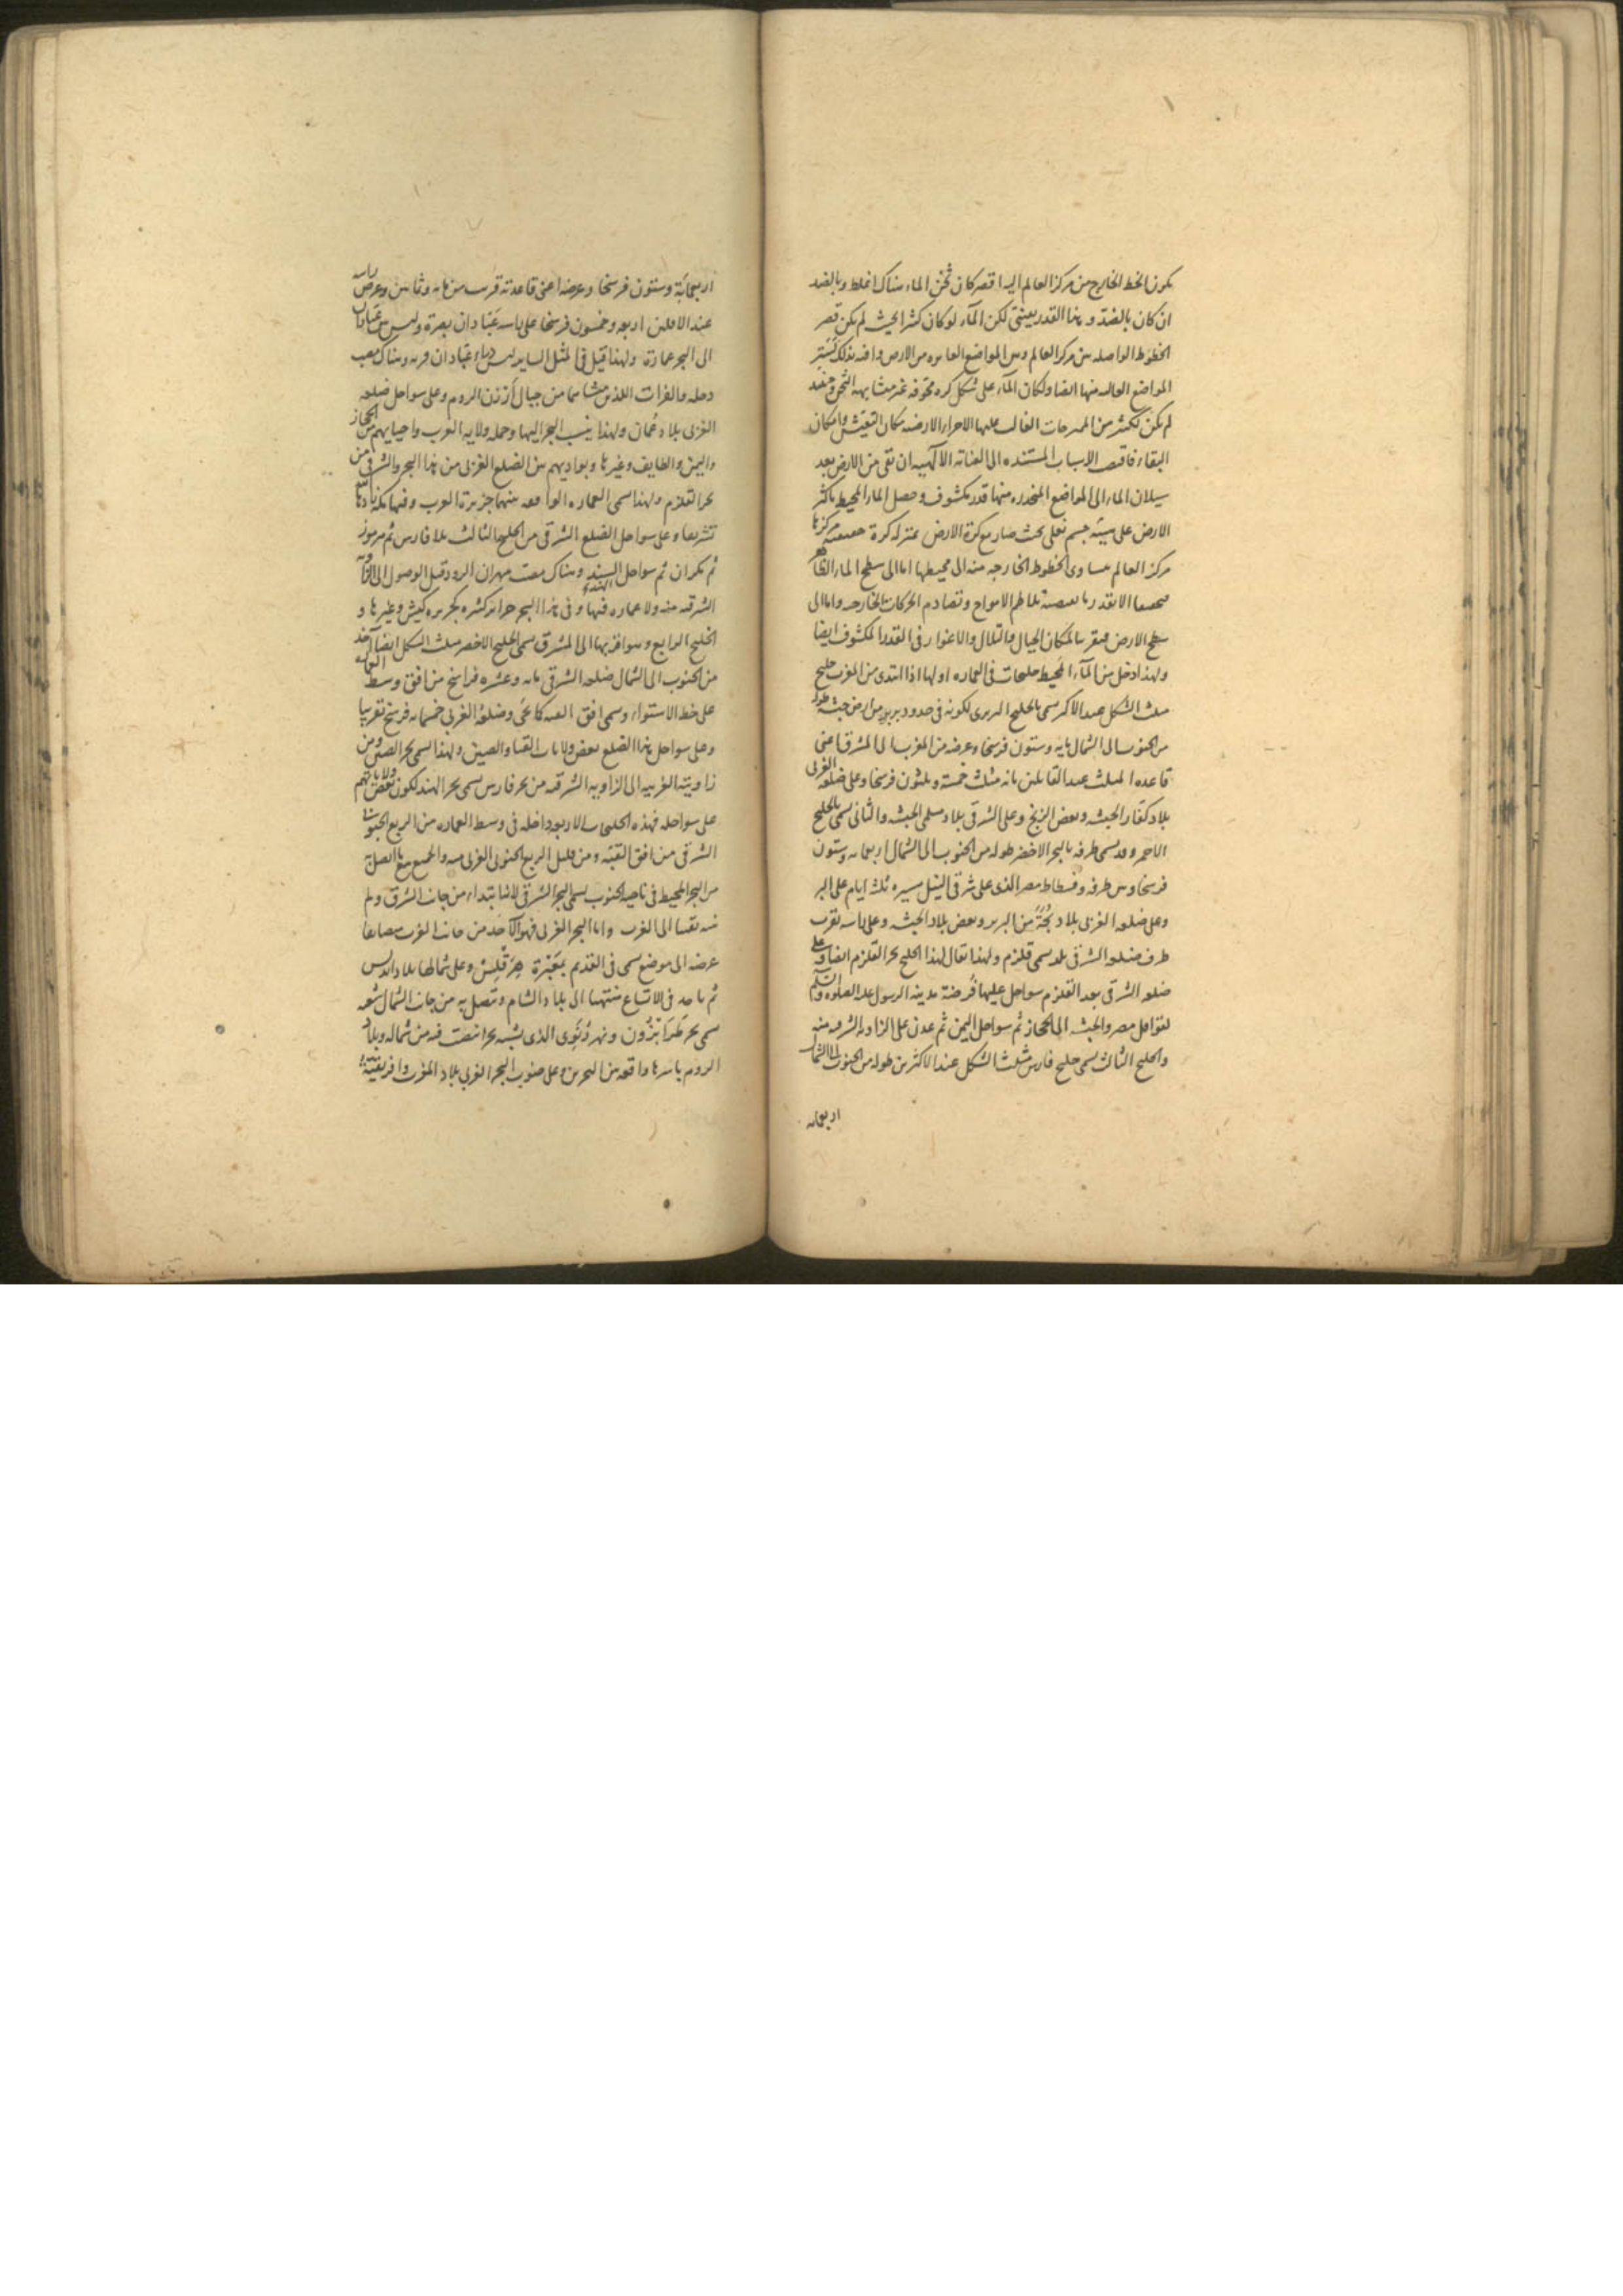 يكون الخط الخارج من مركز العالم اليه اقصر كان ثخن الماء هناك اغلظ وبالضد
ان كان بالضد وهذا القدر بيّنتي لكن الماء لو كان كثيرا بحيث لم يكن قصر
الخطوط الواصله بين مركز العالم وبين المواضع العامره من الارض وافيه بذلك لستر
المواضع العاليه منها ايضا ولكان الماء على شكل كره مجوفه غير متشابهه الثخن وحينئذ
لم يكن يمكن من الممتزجات الغالب عليها الاجزاء الارضيه مكان التعيش وامكان
البقاء فاقتضى الاسباب المستنده الى العنايه الالهيه ان بقى من الارض بعد
سيلان الماء الى المواضع المنحدره منها قدر مكشوف وحصل الماء المحيط باكثر
الارض على هيئة جسم تعلى بحيث صار مع كرة الارض بمنزله كرة مركزها
مركز العالم يساوى الخطوط الخارجه منه الى محيطها اما الى سطح الماء الظاهر
الا بقدر ما تلاطم الامواج وتصادم الحركات الخارجه واما الى
سطح الارض فبقريب لمكان الجبال والتلال والاغوار فى القدر المكشوف ايضا
ولهذا دخل من الماء المحيط خلجات فى العماره اولها اذا ابتدى من المغرب خليج
مثلث الشكل عند الاكثر يسمى بالخليج البربرى لكونه فى حدود بربر من ارض حبشه طوله
من الجنوب الى الشمال مايه وستون فرسخا وعرضه من المغرب الى المشرق اعنى
قاعده المثلث عند القايلين بانه مثلث خمسة وثلثون فرسخا وعلى ضلعه الغربى
بلاد كفار الحبشه وبعض الزنج وعلى الشرقى بلاد مسلمى الحبشه والثانى يسمى بالخليج
الاحمر وقد يسمى طرفه بالبحر الاخضر طوله من الجنوب الى الشمال اربعمايه وستون
فرسخا وبين طرفه وفسطاط مصر الذى على شرقى النيل مسيره ثلثة ايام على البر
وعلى ضلعه الغربى بلاد بُجَةَ من البربر وبعض بلاد الحبشه وعلى راسه بقرب
طرف ضلعه الشرقى بلد يسمى قلزم ولهذا يقال لهذا الخليج بحر القلزم ايضا وعلى
ضلعه الشرقى بعد القلزم سواحل عليها فُرضة مدينه الرسول عليه الصلوه والسلم
لقوافل مصر والحبشه الى الحجاز ثم سواحل اليمن ثم عدن على الزاويه الشرقيه منه
والخليج الثالث يسمى خليج فارس مثلث الشكل عند الاكثرين طوله من الجنوب الى الشمال
اربعمايه
اربعمائة وستون فرسخا وعرضه اعنى قاعدته قريب من مايه وثمانين وعرض راسه
عند الاقلين اربعه وخمسون فرسخا على راسه عَبّادان بصرة وليس من عَبّادان
الى البحر عمارة ولهذا قيل فى المثل الساير ليس وراء عبّادان قريه وهناك مصب
دجله والفرات اللذين منشاهما من جبال أرزن الروم وعلى سواحل ضلعه
الغربى بلاد عُمان ولهذا ينسب البحر اليها وجمله ولايه العرب واحيايهم من الحجاز
واليمن والطايف وغيرها وبواديهم بين الضلع الغربى من هذا البحر والشرقى من
بحر القلزم ولهذا سمى العماره الواقعه بينهما جزيرة العرب وفيها مكه زادها الله
تشريفا وعلى سواحل الضلع الشرقى من الخليج الثالث بلاد فارس ثم هرموز
ثم مكران ثم سواحل السند وهناك مصب مهران الرود قبل الوصول الى الزاويه
الشرقيه منه ولا عماره فيها وفى هذا البحر جزاير كثيره كجزيره كيش وغيرها و
الخليج الرابع وهو اقربها الى المشرق يسمى الخليج الاخضر مثلث الشكل ايضا اخذ
من الجنوب الى الشمال ضلعه الشرقى مايه وعشره فراسخ من افق وسط العماره
على خط الاستواء ويسمى افق القبه كما يجى وضلعه الغربى خمسمايه فرسخ تقريبا
وعلى سواحل هذا الضلع بعض ولايات القتا والصين ولهذا يسمى بحر الصين ومن
زاويته الغربيه الى الزاويه الشرقيه من بحر فارس يسمى بحر الهند لكون بعض ولاياتهم
على سواحله فهذه الخلجات الاربعه داخله فى وسط العماره من الربع الجنوبى
الشرقى من افق القبّه ومن قليل الربع الجنوبى الغربى منه والجميع مع ما اتصل به
من البحر المحيط فى ناحيه الجنوب يسمى البحر الشرقى لانها ابتداء من جانب الشرق ولم
الى الغرب واما البحر الغربى فهو الآخذ من جانب الغرب
عرضه الى موضع يسمى فى القديم بمَعْبَرة هِرَقْلِسْ وعلى شمالها بلاد اندلس
ثم ياخذ فى الاتساع منتهيا الى بلاد الشام ويتصل به من جانب الشمال شعبه
يسمى بحر طَرَابْزُون ونهر دُنَوى الذى يشبه بحرا ينصب فيه من شماله وبلاد
الروم باسرها واقعه بين البحرين وعلى جنوب البحر الغربى بلاد المغرب وافريقيّة